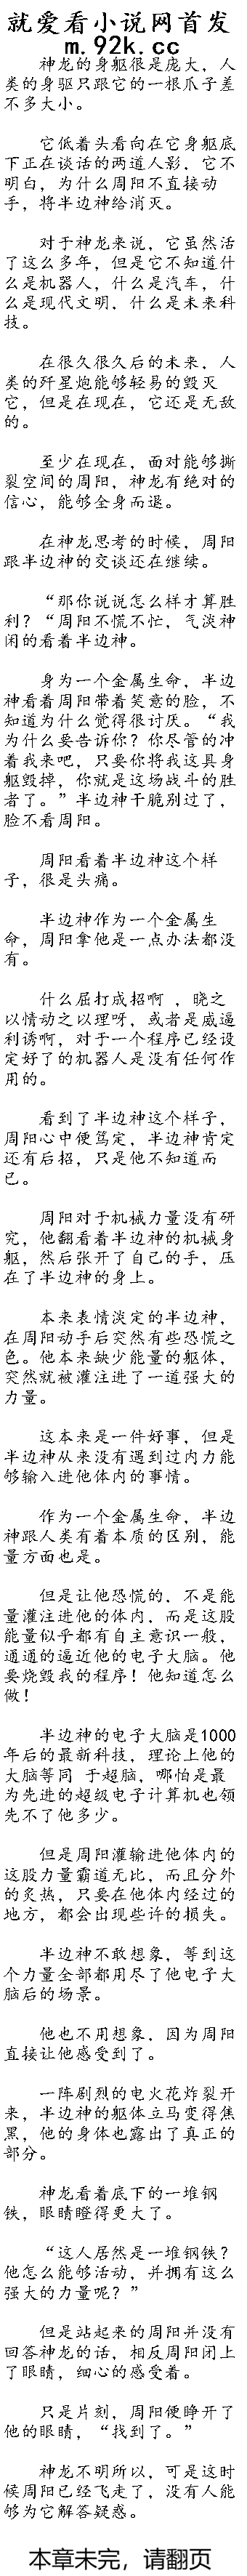 就爱看小说网首发
m.92k.cc
神龙的身躯很是庞大，人
类的身驱只跟它的一根爪子差
不多大小。
它低着头看向在它身躯底
下正在谈话的两道人影，它不
明白，为什么周阳不直接动
手，将半边神给消灭。
对于神龙来说，它虽然活
了这么多年，但是它不知道什
么是机器人，什么是汽车，什
么是现代文明，什么是未来科
技。
在很久很久后的未来，人
类的歼星炮能够轻易的毁灭
它，但是在现在，它还是无敌
的。
至少在现在，面对能够撕
裂空间的周阳，神龙有绝对的
信心，能够全身而退。
在神龙思考的时候，周阳
跟半边神的交谈还在继续。
“那你说说怎么样才算胜
利？“周阳不慌不忙，气淡神
闲的看着半边神。
身为一个金属生命，半边
神看着周阳带着笑意的脸，不
知道为什么觉得很讨厌。“我
为什么要告诉你？你尽管的冲
着我来吧，只要你将我这具身
躯毁掉，你就是这场战斗的胜
者了。”半边神干脆别过了，
脸不看周阳。
周阳看着半边神这个样
子，很是头痛。
半边神作为一个金属生
命，周阳拿他是一点办法都没
有。
什么屈打成招啊 ，晓之
以情动之以理呀，或者是威逼
利诱啊，对于一个程序已经设
定好了的机器人是没有任何作
用的。
看到了半边神这个样子，
周阳心中便笃定，半边神肯定
还有后招，只是他不知道而
已。
周阳对于机械力量没有研
究，他翻看着半边神的机械身
躯，然后张开了自己的手，压
在了半边神的身上。
本来表情淡定的半边神，
在周阳动手后突然有些恐慌之
色。他本来缺少能量的躯体，
突然就被灌注进了一道强大的
力量。
这本来是一件好事，但是
半边神从来没有遇到过内力能
够输入进他体内的事情。
作为一个金属生命，半边
神跟人类有着本质的区别，能
量方面也是。
但是让他恐慌的，不是能
量灌注进他的体内，而是这股
能量似乎都有自主意识一般，
通通的逼近他的电子大脑。他
要烧毁我的程序！他知道怎么
做！
半边神的电子大脑是1000
年后的最新科技，理论上他的
大脑等同 于超脑，哪怕是最
为先进的超级电子计算机也领
先不了他多少。
但是周阳灌输进他体内的
这股力量霸道无比，而且分外
的炙热，只要在他体内经过的
地方，都会出现些许的损失。
半边神不敢想象，等到这
个力量全部都用尽了他电子大
脑后的场景。
他也不用想象，因为周阳
直接让他感受到了。
一阵剧烈的电火花炸裂开
来，半边神的躯体立马变得焦
黑，他的身体也露出了真正的
部分。
神龙看着底下的一堆钢
铁，眼睛瞪得更大了。
“这人居然是一堆钢铁？
他怎么能够活动，并拥有这么
强大的力量呢？”
但是站起来的周阳并没有
回答神龙的话，相反周阳闭上
了眼睛，细心的感受着。
只是片刻，周阳便睁开了
他的眼睛，“找到了。”
神龙不明所以，可是这时
候周阳已经飞走了，没有人能
够为它解答疑惑。
本章未完，请翻页